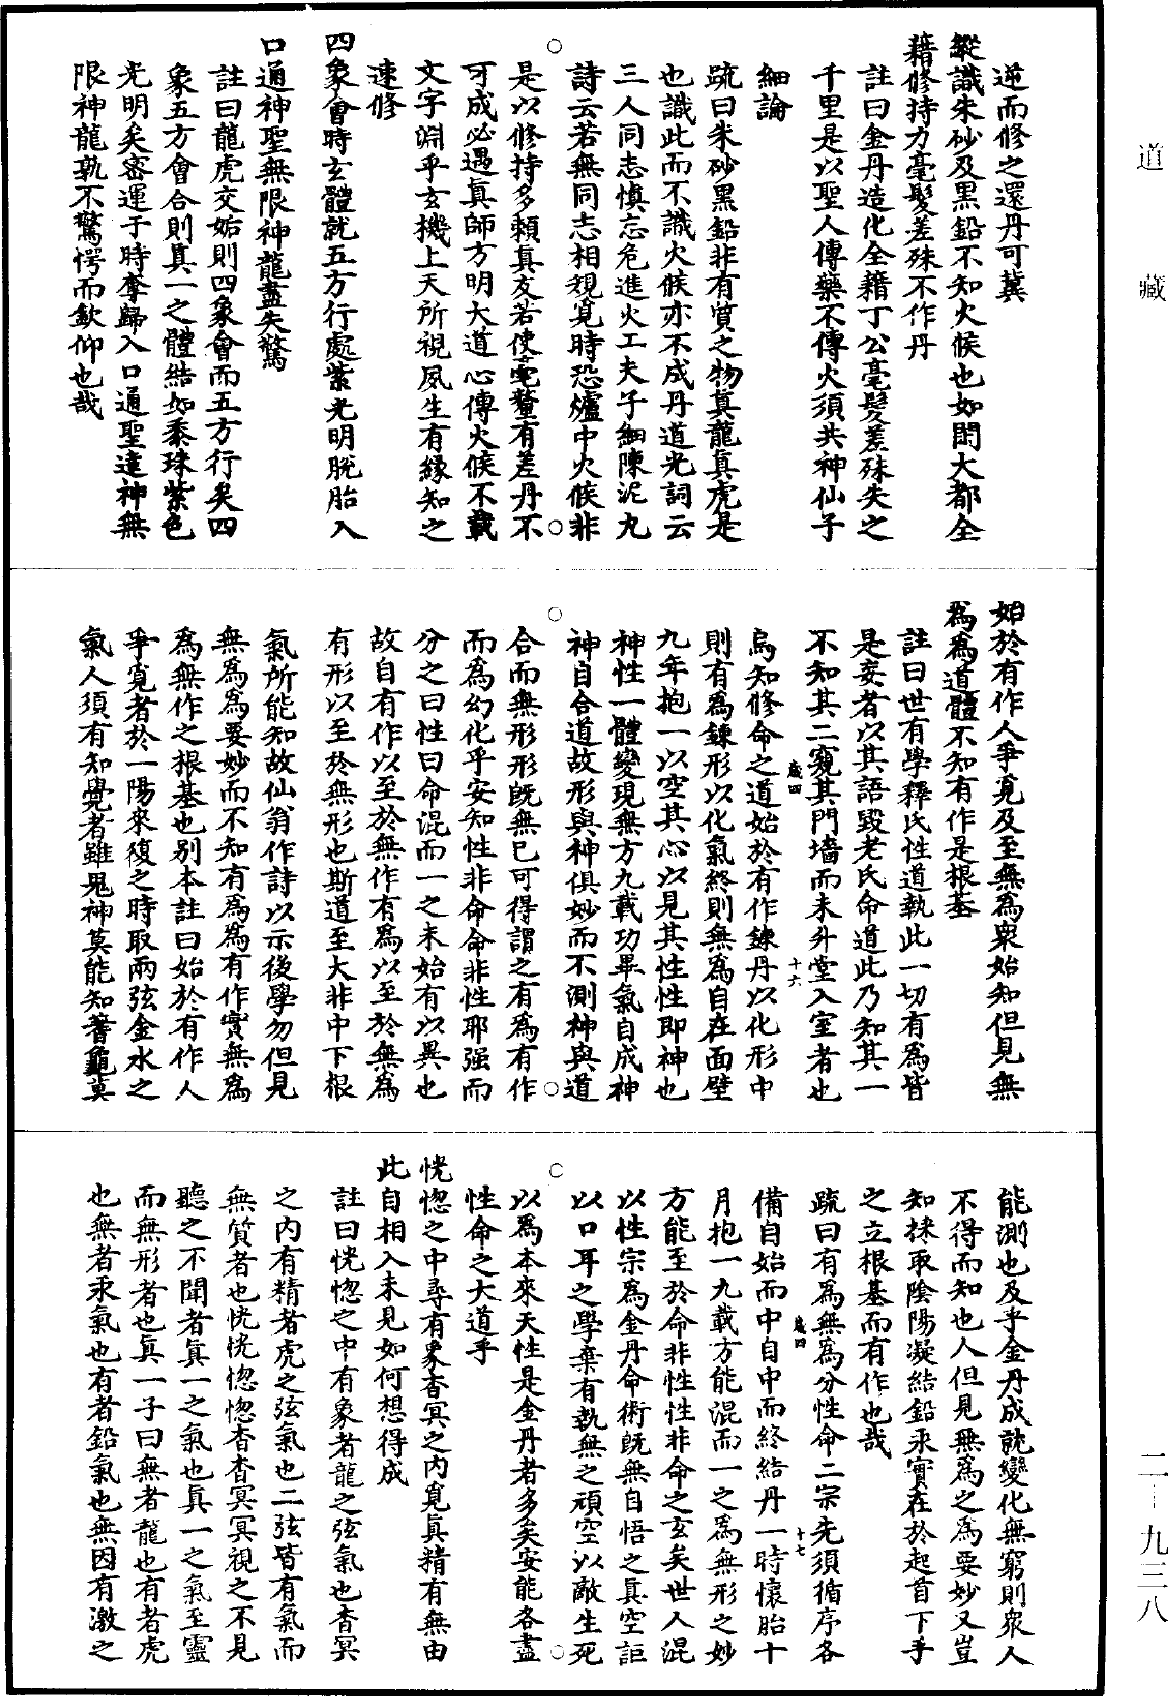 道藏
逆而修之還丹可冀
縱識朱砂及黑鉛不知火候也如閑大都全
藉修持力毫髮差殊不作丹
註曰金丹造化全藉丁公毫髮差殊失之
千里是以聖人傳藥不傳火須共神仙子
細論
疏曰朱砂黑鉛非有質之物真龍真虎是
也識此而不識火候亦不成丹道光詞云
三人同志慎忘危進火工夫子細陳泥丸
詩云若無同志相規覓時恐爐中火候非
是以修持多賴真友若使毫釐有差丹不
可成必遇真師方明大道心傳火候不載
文字淵乎玄機上天所視夙生有緣知之
速修
四象會時玄體就五方行處紫光明脫胎入
口通神聖無限神龍盡失驚
註曰龍虎交姤則四象會而五方行矣四
象五方會合則真一之體結如黍珠紫色
光明矣密運于時奪歸入口通聖達神無
限神龍孰不驚愕而欽仰也哉
始於有作人爭覓及至無為衆始知但見無
為為道體不知有作是根基
註曰世有學釋氏性道執此一切有為皆
是妄者以其語毀老氏命道此乃知其一
不知其二窺其門墻而未升堂入室者也
烏知修命之道始於有作鍊丹以化形中
則有為鍊形以化氣終則無為自在面壁
九年抱一以空其心以見其性性即神也
神性一體變現無方九載功畢氣自成神
神自合道故形與神俱妙而不測神與道
合而無形形既無已可得謂之有為有作
而為幻化乎安知性非命命非性耶强而
分之曰性曰命混而一之未始有以異也
故自有作以至於無作有為以至於無為
有形以至於無形也斯道至大非中下根
氣所能知故仙翁作詩以示後學勿但見
無為為要妙而不知有為為有作實無為
為無作之根基也別本註曰始於有作人
爭覓者於一陽來復之時取兩弦金水之
氣人須有知覺者雖鬼神莫能知蓍龜莫
歲四
十六
能測也及乎金丹成就變化無窮則衆人
不得而知也人但見無為之為要妙又豈
知採取陰陽凝結鉛汞實在於起首下手
之立根基而有作也哉
疏曰有為無為分性命二宗先須循序各
備自始而中自中而終結丹一時懷胎十
月抱一九載方能混而一之為無形之妙
方能至於命非性性非命之玄矣世人混
以性宗為金丹命術既無自悟之真空詎
以口耳之學棄有執無之頑空以敵生死
以為本來天性是金丹者多多矣安能各盡
性命之大道乎
恍惚之中尋有象杳冥之內覓真精有無由
此自相入未見如何想得成
註曰恍惚之中有象者龍之弦氣也杳冥
之內有精者虎之弦氣也二弦皆有氣而
無質者也恍恍惚惚杳杳冥冥視之不見
聽之不聞者真一之氣也真一之氣至靈
而無形者也真一子曰無者龍也有者虎
也無者汞氣也有者鉛氣也無因有激之
歲四
十七
二一九三八